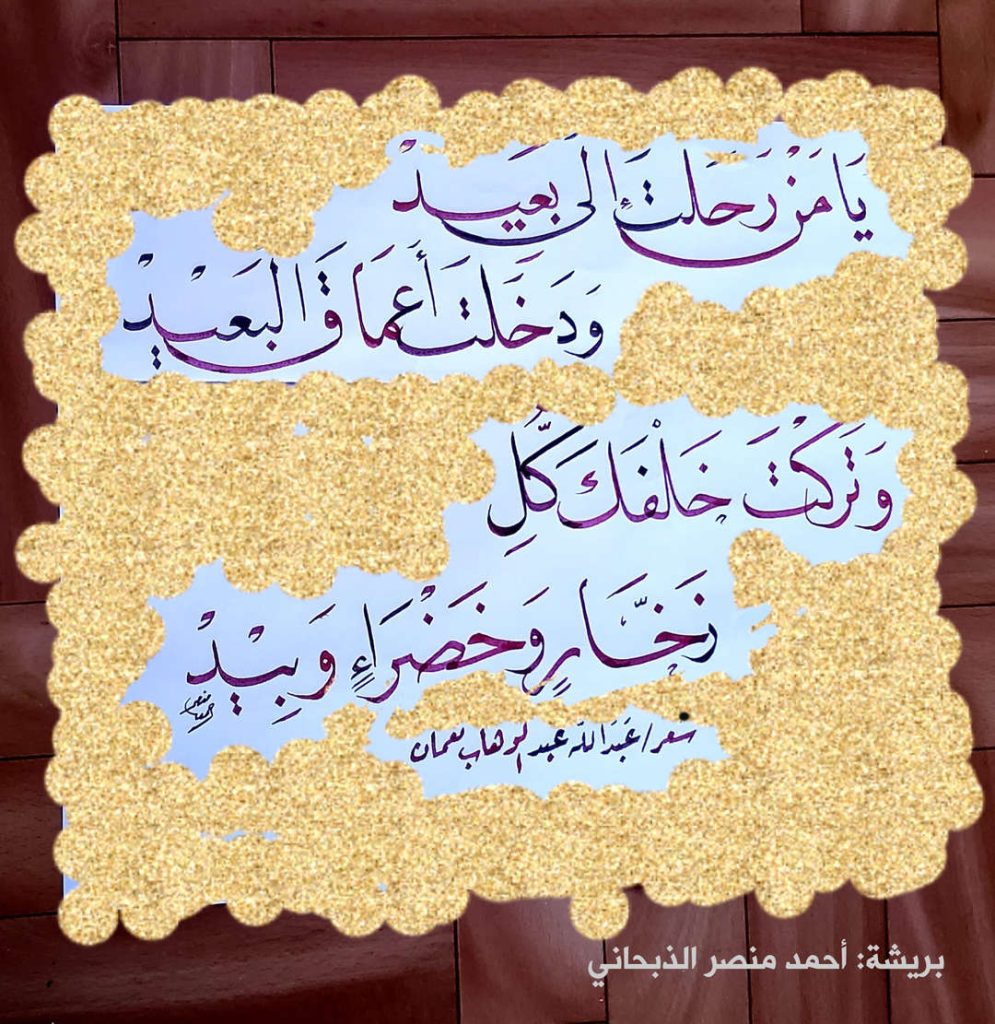 يَا مَنْ رَحَلتَ إلى بَعَيِدْ
وَدَخَلتَ أَعمَاقَ البَعَيْدْ
وَتَرَكْتَ خَلْفَكَ كُلِّ
زَخَّارٍ وَخَضْرَاءٍ وَبِيْدْ
شعر/ عَبدَالله عبدالوهاب نعمان
بريشة: أحمد منصر الذبحاني